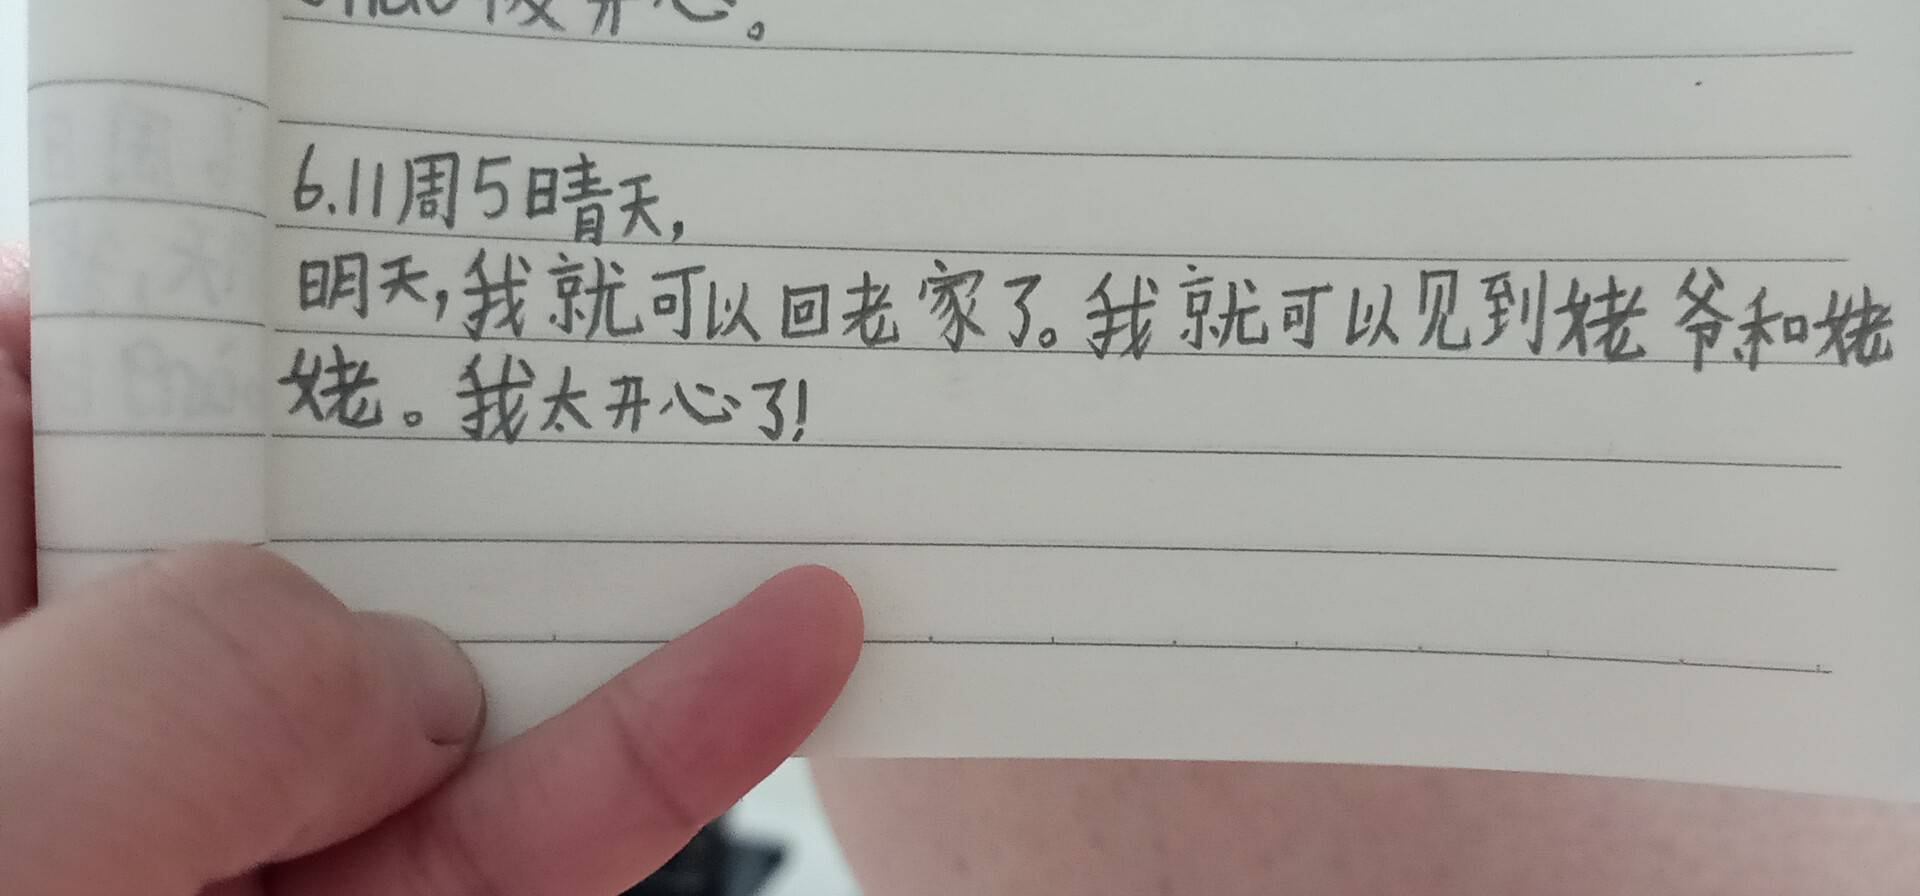 开心。
6.11周5晴天,
明天,我就可以回老家了。我就可以见到姥爷和姥
姥。我太开心了!